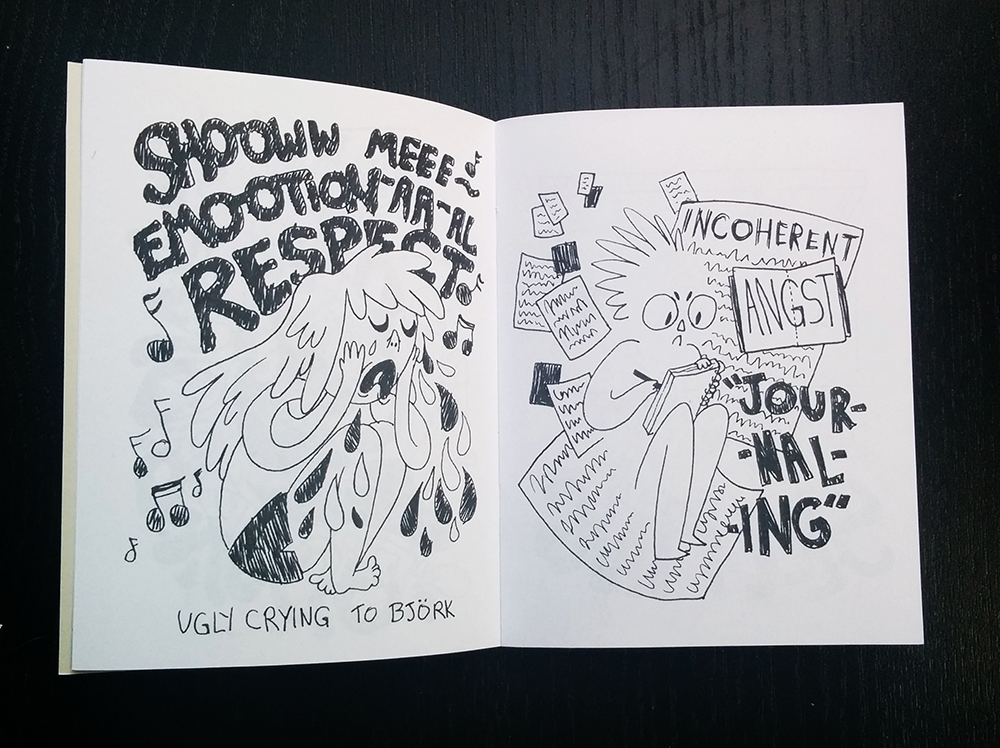 SHOOWW MEEE~
EMO-OTION-AA-AL
RESPECT
UGLY CRYING TO BJÖRK
INCOHERENT
ANGST
"JOUR-
-NAL-
-ING"